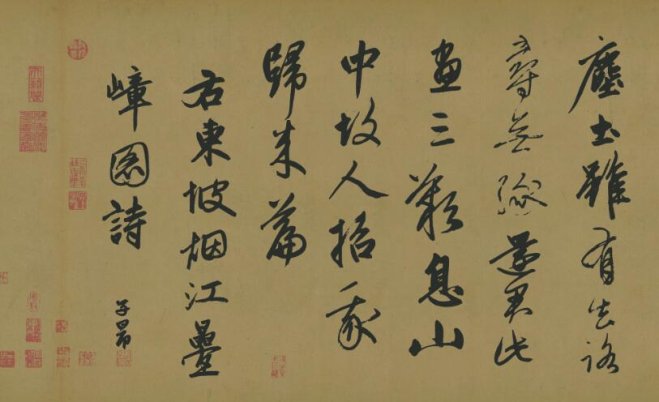 塵土雖有去路
尋無緣還君此
畫三歎息山
中故人招我
歸來篇
右東坡烟江疊
嶂圖詩
子昂